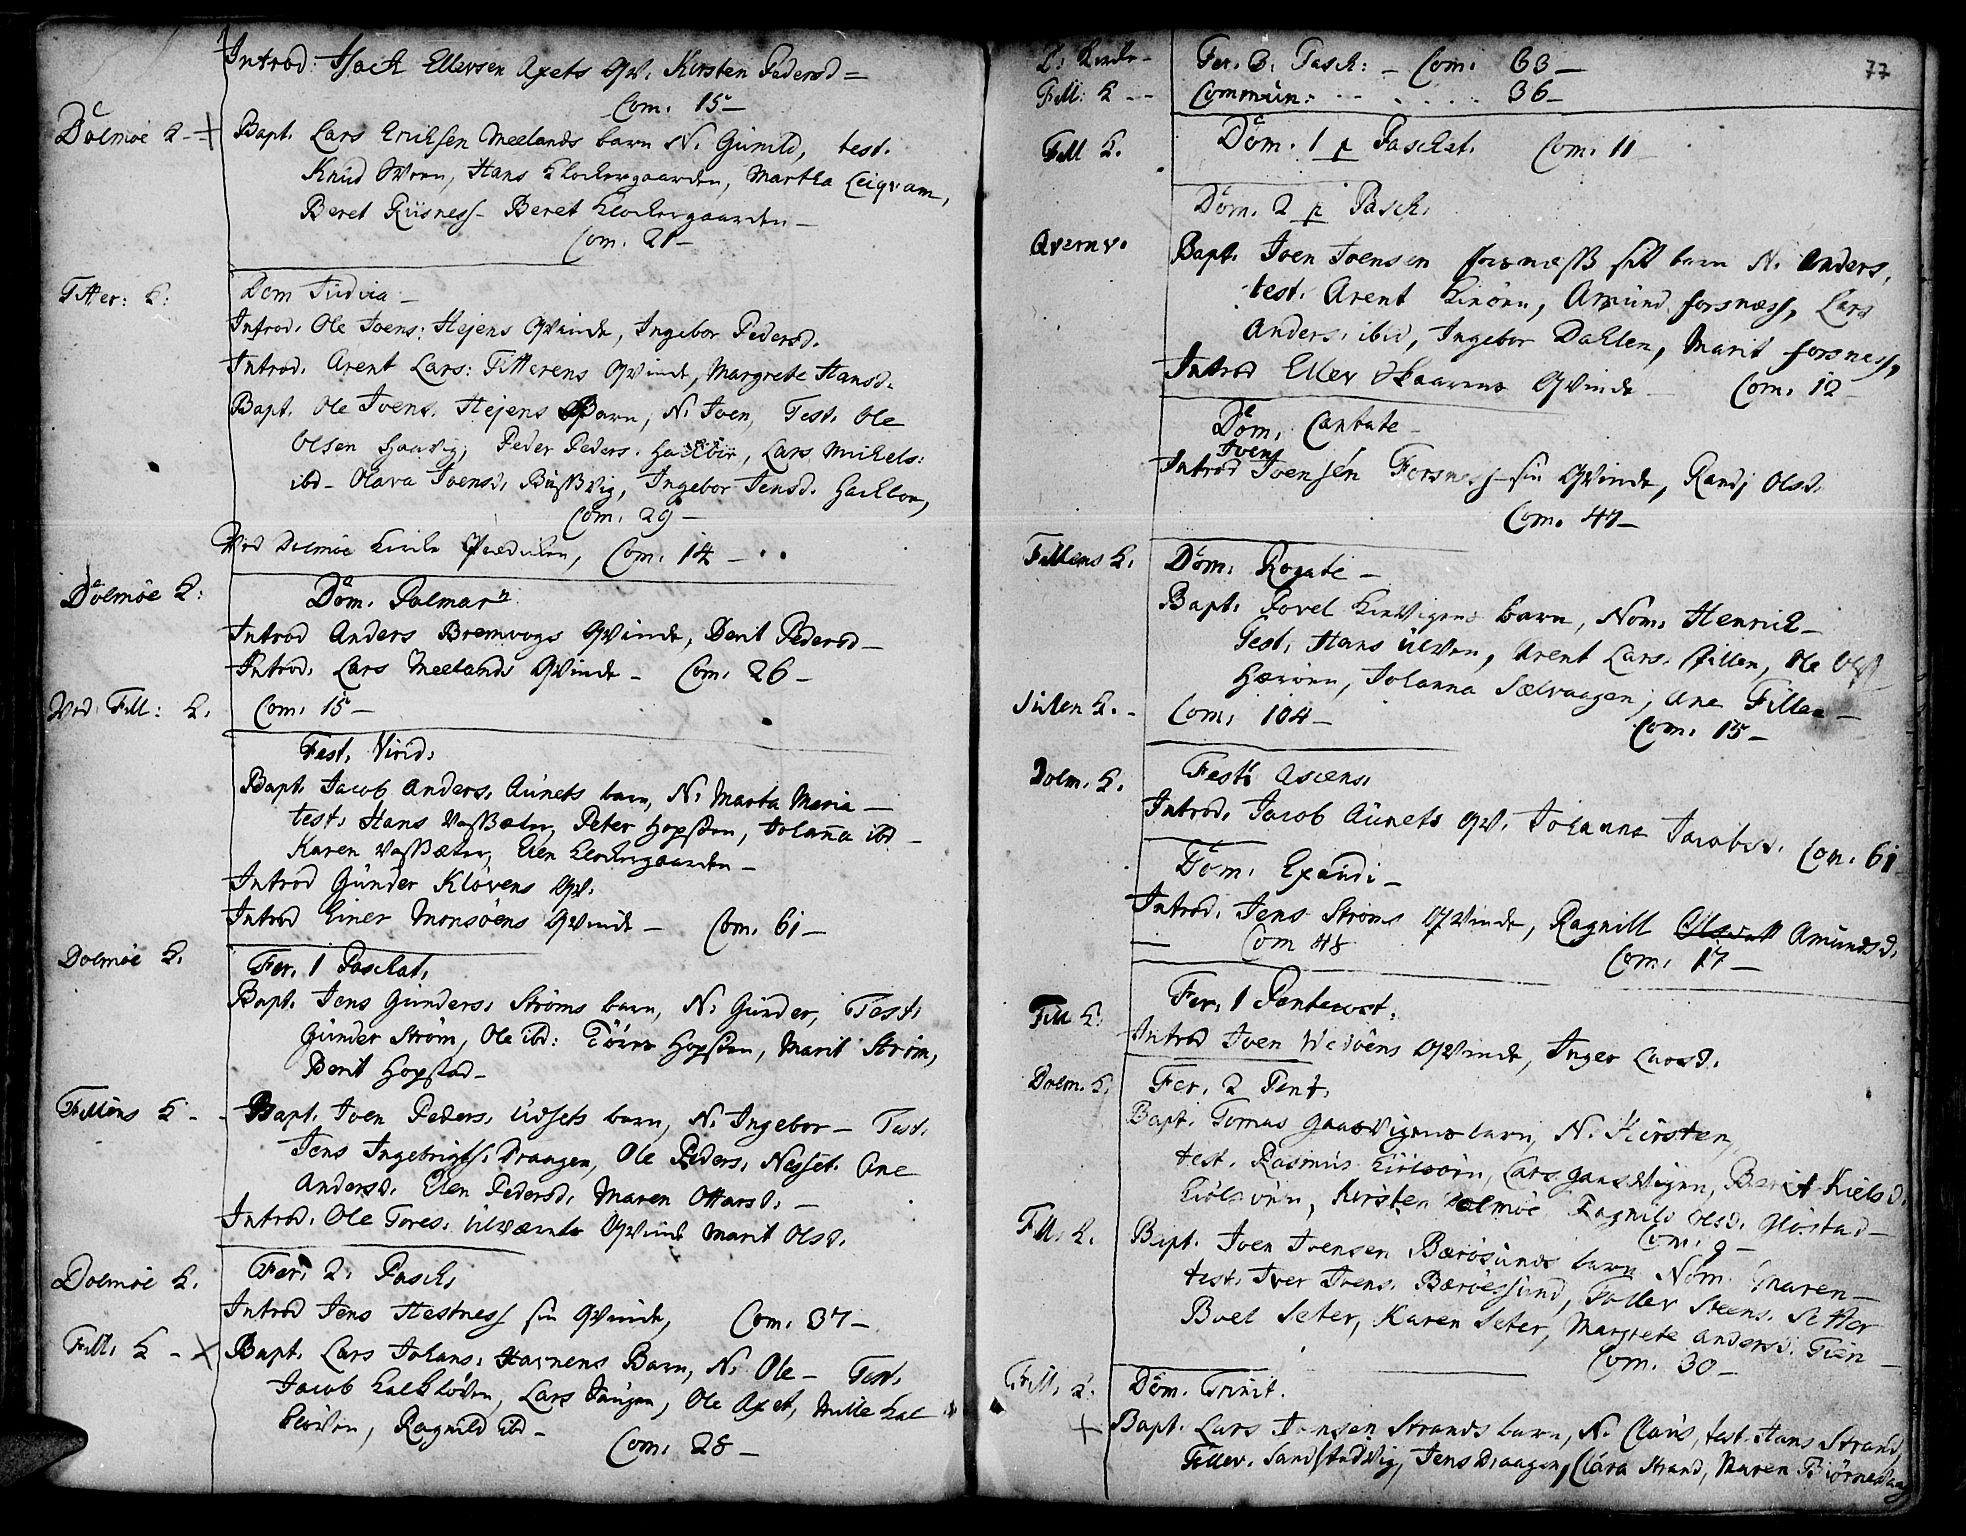 Introd. Isach Ellevsen Axets Qv. Kirsten Pedersd=
Com. 15-
Dolmöe K - + Bapt. Lars Erichsen Meelands barn N. Gunild, test.
Knud Ween, Hans Klochergaarden, Martha Leiqvam,
Beret Riisness - Beret Klochergaarden -
Com. 21-
Titter: K: Dom Judica -
Introd. Ole Joens: Hejens Qvinde, Ingebor Pedersd.
Introd. Arent Lars: Titterens Qvinde, Margrete Hansd.
Bapt. Ole Joens. Hejens Barn, N. Joen, Test. Ole
Olsen Haavig, Peder Peders. Lars Michels:
ibd - Olava Joensd. Ingebor Jensd.
Com. 29-
Ved Dolmöe Kirke Prædiken, Com. 14 -
Dolmöe K: Dom. Palmar
Introd Anders Bremvogs Qvinde, Berit Pedersd -
Introd. Lars Meelands Qvinde - Com. 26 -
Ved Fill: K. Com. 15 -
Fest. Virid.
Bapt. Jacob Anders. Aunets barn, N. Marta Maria -
test. Hans Peter Hopsten, Johanna ibd -
Karen Elen Klochergaarden -
Introd Gunder Klövens Qv.
Introd Einer Monsöens Qvinde - Com. 61 -
Dolmöe K. Fer. 1 Paschat.
Bapt. Jens Gunders. Ströms barn, N. Gunder, Test.
Gunder Ström, Ole ibd: Hopsten, Marit Ström,
Berit Hopstad -
Fillens K - Bapt. Joen Peders. Udsets barn, N. Ingebor - Test.
Jens Ingebrigts. Draagen, Ole Peders. Nesset. Ane
Andersd. Elen Pedersd. Maren Ottarsd. -
Introd. Ole Tores. Ulvæens Qvinde Marit Olsd.
Dolmöe K. Fer. 2. Pasch.
Introd Jens Hestness sin Qvinde, Com. 37 -
Fill. K - X Bapt. Lars Johans. Havnens Barn, N. Ole - Test.
Jacob Kalklöven, Lars Ole Axet, Mille Kal
klöven, Ragnild ibd -
Com. 28 -
77
D. Kirke - Fer. 3. Pasch: - Com. 63 -
Fill: K - - Commun: 36 -
Fill K. Dom. 1 p Paschat. Com. 11
Dom. 2 p Pasch.
Qvernv. Bapt. Joen Joensen Forsness sit barn N. Anders,
test. Arent Amund Forsness, Lars
Anders. ibid, Ingebor Dahlen, Marit Forsness,
Introd Ellev Skaarens Qvinde - Com. 12 -
Dom. Cantate -
Introd Joen Joensén Forsness sin Qvinde, Randi Olsd.
Com. 47 -
Fillens K. Dom. Rogate -
Bapt. Povel barn, Nom. Henrich -
Test. Hans Ulven, Arent Lars. Fillen, Ole Ols
Johanna Sælvaagen, Ane Fillen -
Com. 15 -
K. - Com. 104 -
Dolm. K. Festi Ascens.
Introd. Jacob Aunets Qv. Johanna Jacobsd. Com. 61
Dom. Exaudi -
Introd. Jens Ströms Qvinde, Ragnill Amundsd.
Com 48
Com. 17 -
Fill K. Fer. 1 Pentecost.
Introd Joen Wedöens Qvinde, Inger Larsd.
Dolm. K. Fer. 2 Pent.
Bapt. Tomas Gaasvigens barn, N. Kirsten,
test. Rasmus Lars Gaasvigen, Berit Kielsd.
Kirsten Dolmöe Ragnild Olsd. Höstad -
Com. 9 -
Fill. K. Bapt. Joen Joensen Bæröesunds barn Nom. Maren -
test. Iver Joens. Bæröessund, Toller Steens. Setter
Boel Seter, Karen Seter, Margrete Andersd.
Com. 30 -
Fill. K. Dom. Trinit.
+ Bapt. Lars Joensen Strands barn, N. Claus, test. Hans Strand,
Tollev. Sandstadvig, Jens Draagen, Clara Strand, Maren